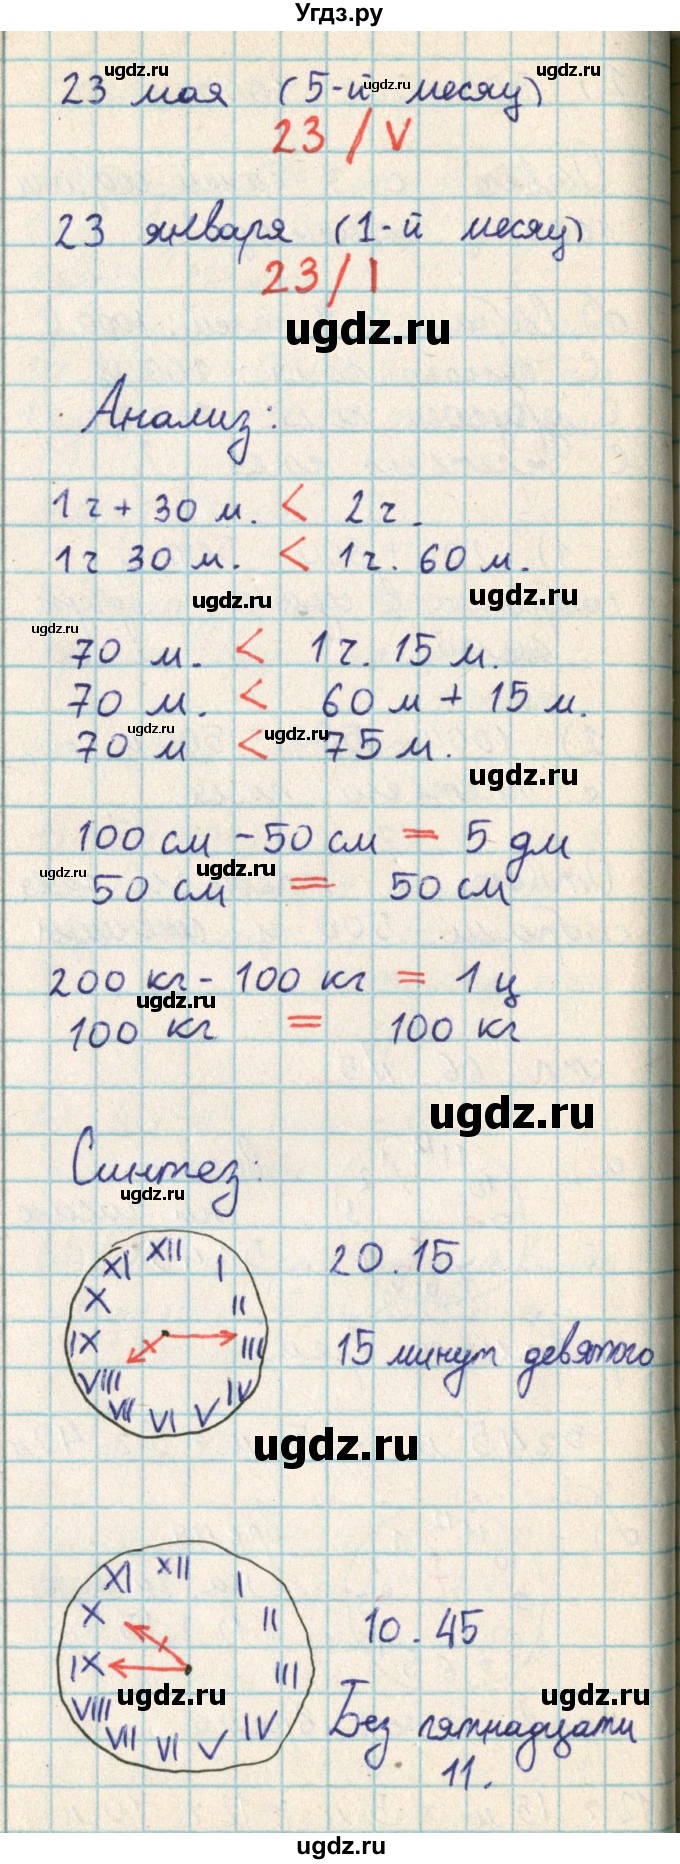 Угдз.ру
ugdz.ru
ugdz.ru
ugdz.ru
23 мая (5-й месяц)
23 / V
23 января (1-й месяц)
23 / I
ugdz.ru
Анализ:
1 ч + 30 м. < 2 ч.
1 ч 30 м. < 1 ч. 60 м.
ugdz.ru
ugdz.ru
ugdz.ru
70 м. < 1 ч. 15 м.
70 м. < 60 м + 15 м.
ugdz.ru
ugdz.ru
70 м < 75 м.
ugdz.ru
100 см - 50 см = 5 дм
ugdz.ru
ugdz.ru
50 см = 50 см
200 кг - 100 кг = 1 ц
ugdz.ru
100 кг = 100 кг
ugdz.ru
Синтез:
ugdz.ru
XII I II III IV V VI VII VIII IX X XI
20.15
15 минут девятого
ugdz.ru
XII I II III IV V VI VII VIII IX X XI
10.45
ugdz.ru
Без пятнадцати
11.
ugdz.ru